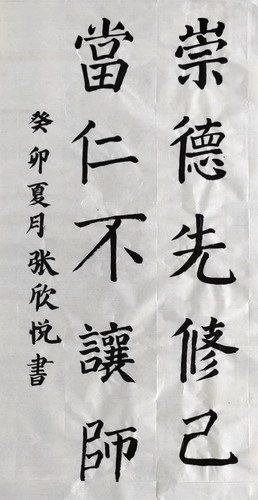 崇德先修己
當仁不讓師
癸卯夏月张欣悦書